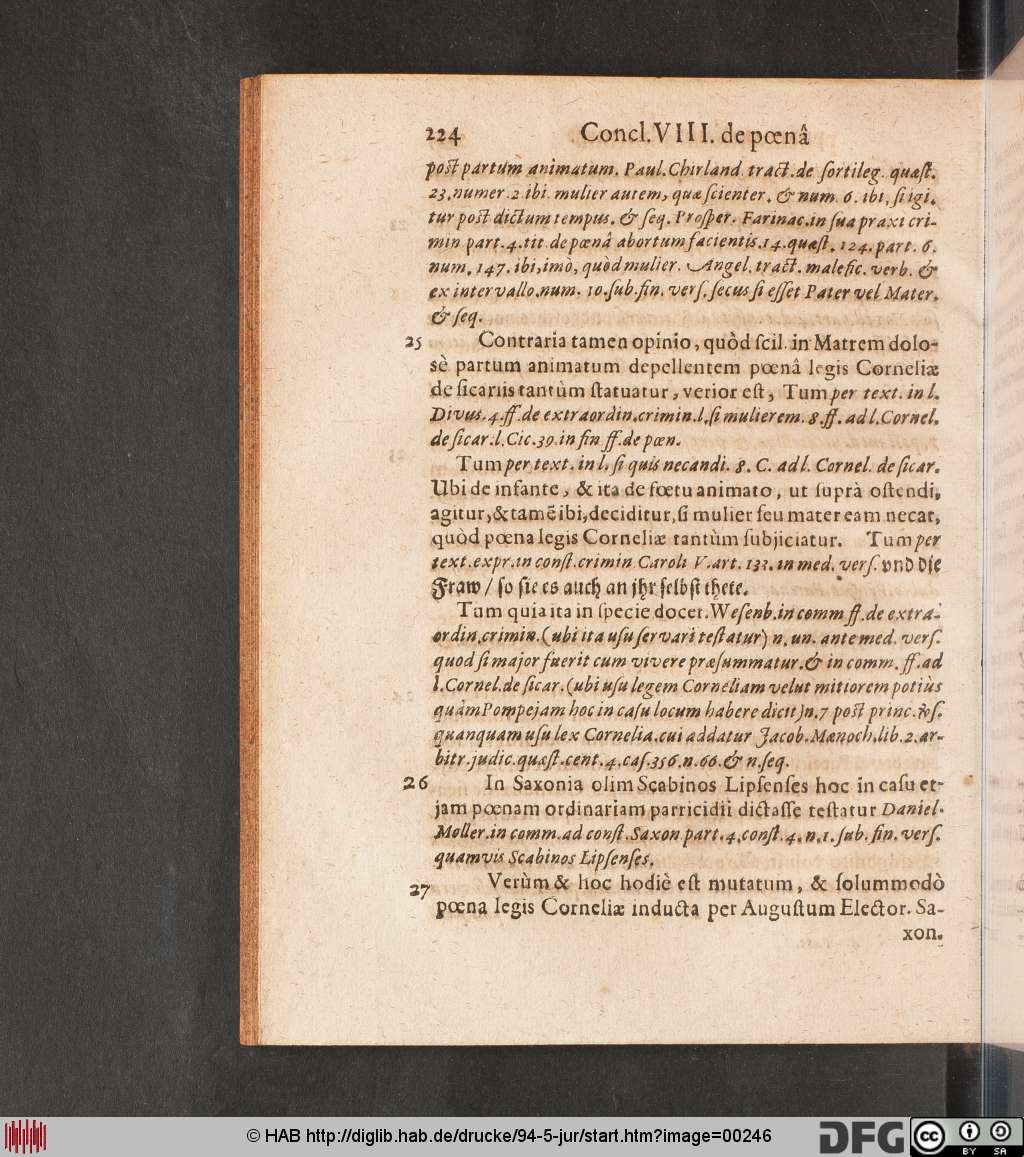 224 Concl. VIII. de pœnâ
post partum animatum. Paul. Chirland. tract. de sortileg. quæst.
23. numer. 2. ibi. mulier autem, quæ scienter. & num. 6. ibi, si igi-
tur post dictum tempus. & seq. Prosper. Farinac. in sua praxi cri-
min. part. 4. tit. de pœnâ abortum facientis. 14. quæst. 124. part. 6.
num. 147. ibi, imò, quòd mulier. Angel. tract. malefic. verb. &
ex intervallo. num. 10. sub. fin. vers. secus si esset Pater vel Mater.
& seq.
25 Contraria tamen opinio, quòd scil. in Matrem dolo-
sè partum animatum depellentem pœnâ legis Corneliæ
de sicariis tantùm statuatur, verior est, Tum per text. in l.
Divus. 4. ff. de extraordin. crimin. l. si mulierem. 8. ff. ad l. Cornel.
de sicar. l. Cic. 39. in fin ff. de pœn.
Tum per text. in l. si quis necandi. 8. C. ad l. Cornel. de sicar.
Ubi de infante, & ita de fœtu animato, ut suprà ostendi,
agitur, & tamē ibi, deciditur, si mulier seu mater eam necat,
quòd pœna legis Corneliæ tantùm subjiciatur. Tum per
text. expr. in const. crimin. Caroli V. art. 133. in med. vers. vnd die
Fraw / so sie es auch an jhr selbst thete.
Tum quia ita in specie docet. Wesenb. in comm ff. de extra-
ordin. crimin. (ubi ita usu servari testatur) n. un. ante med. vers.
quod si major fuerit cum vivere præsummatur. & in comm. ff. ad
l. Cornel. de sicar. (ubi usu legem Corneliam velut mitiorem potiùs
quàm Pompejam hoc in casu locum habere dicit) n. 7 post princ. v̄s.
quanquam usu lex Cornelia. cui addatur Jacob. Mænoch. lib. 2. ar-
bitr. judic. quæst. cent. 4. cas. 356. n. 66. & n. seq.
26 In Saxonia olim Scabinos Lipsenses hoc in casu et-
jam pœnam ordinariam parricidii dictasse testatur Daniel.
Moller. in comm. ad const. Saxon part. 4. const. 4. n. 1. sub. fin. vers.
quamvis Scabinos Lipsenses.
27 Verùm & hoc hodiè est mutatum, & solummodò
pœna legis Corneliæ inducta per Augustum Elector. Sa-
xon.
© HAB http://diglib.hab.de/drucke/94-5-jur/start.htm?image=00246
DFG
cc BY SA